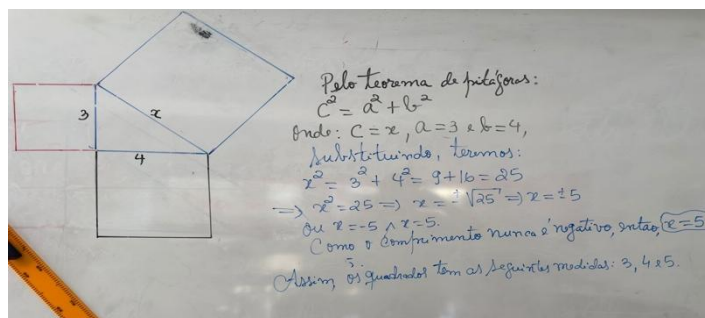 3
x
4
Pelo teorema de pitágoras:
c² = a² + b²
onde: C = x, a = 3 e b = 4,
Substituindo, teremos:
x² = 3² + 4² = 9 + 16 = 25
=> x² = 25 => x = ±√25 => x = ±5
ou x = -5 ∧ x = 5.
Como o comprimento nunca é negativo, entao, x = 5
Assim, os quadrados tem as seguintes medidas: 3, 4 e 5.